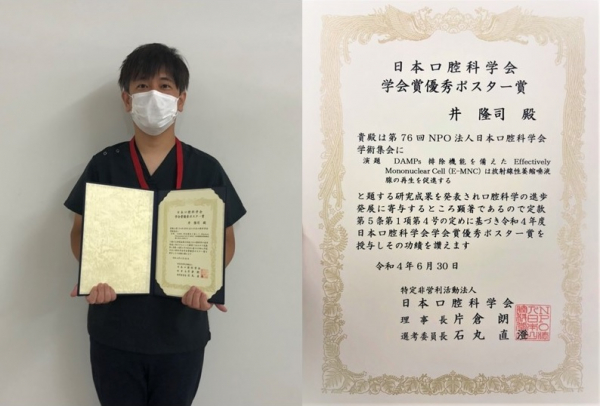 日本口腔科学会
学会賞優秀ポスター賞
井 隆司 殿
貴殿は第76回NPO法人日本口腔科学会
学術集会に
演題 DAMPs 排除機能を備えた Effectively
Mononuclear Cell (E-MNC) は放射線性萎縮唾液
腺の再生を促進する
と題する研究成果を発表され口腔科学の進歩
発展に寄与するところ顕著であるので定款
第5条第1項第4号の定めに基づき令和4年度
日本口腔科学会学会賞優秀ポスター賞を
授与しその功績を讃えます
令和4年6月30日
特定非営利活動法人
日本口腔科学会
理事長 片倉 朗
選考委員長 石丸 直澄